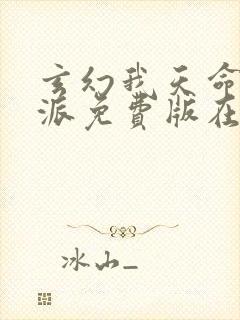 玄幻我天命
派免費版在
冰山_